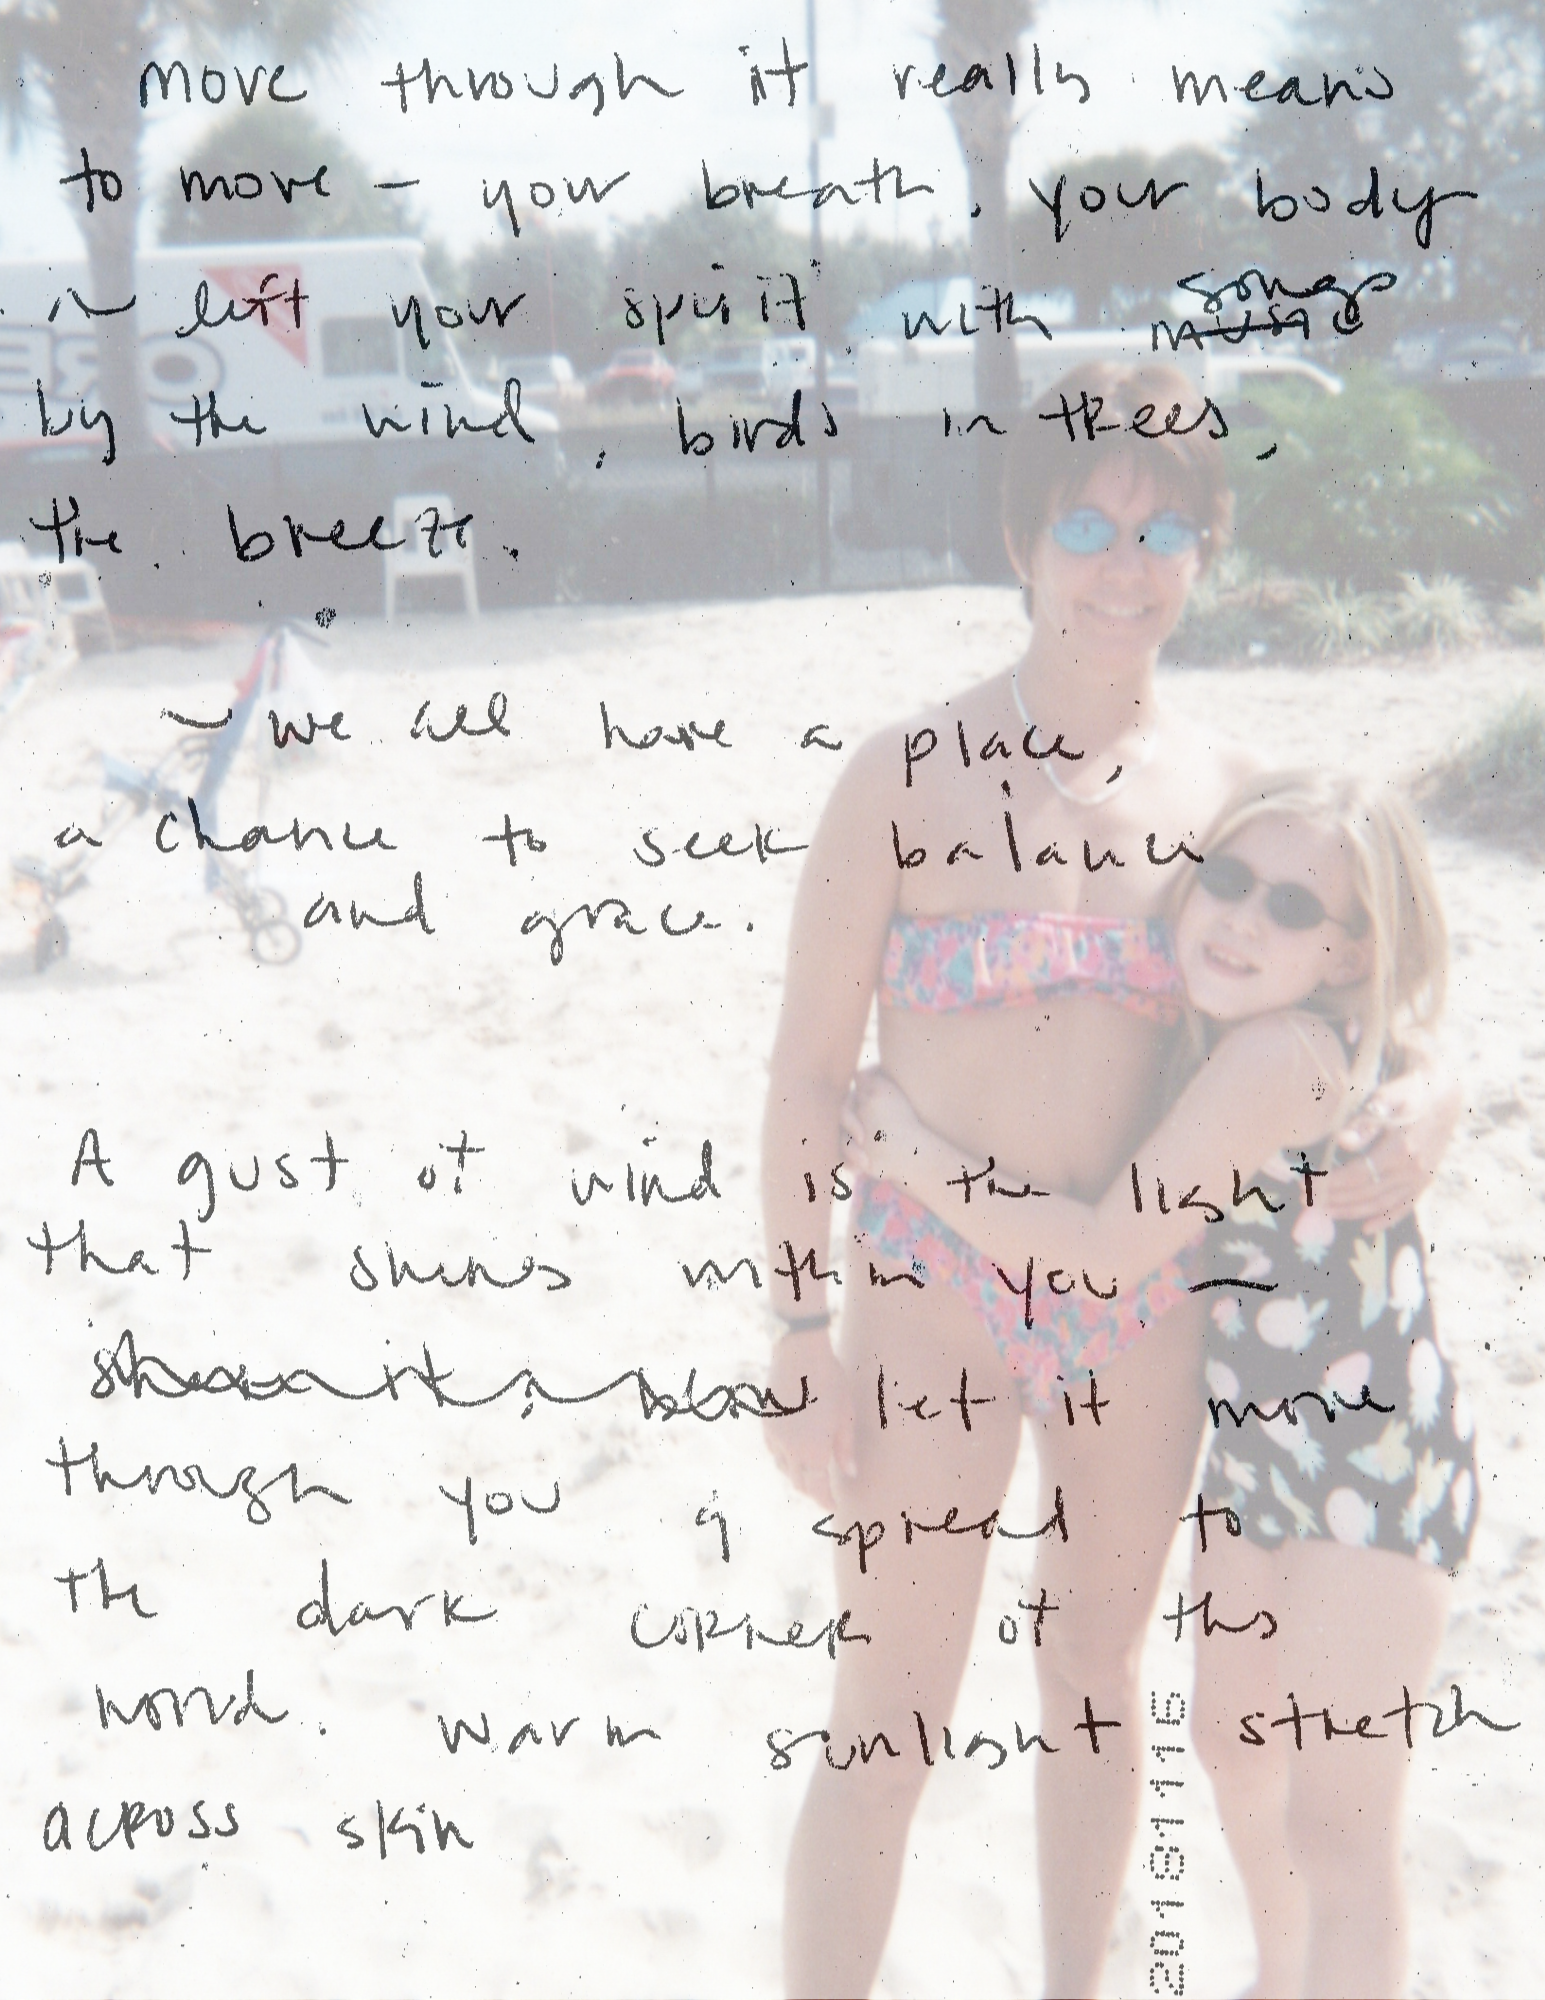 move through it really means
to move – your breath, your body
~ lift your spirit with songs
music
by the wind, birds in trees,
the breeze.
~ we all have a place,
a chance to seek balance
and grace.
A gust of wind is the light
that shines within you —
let it move
through you & spread to
the dark corner of this
world. Warm sunlight stretch
across skin
20181116